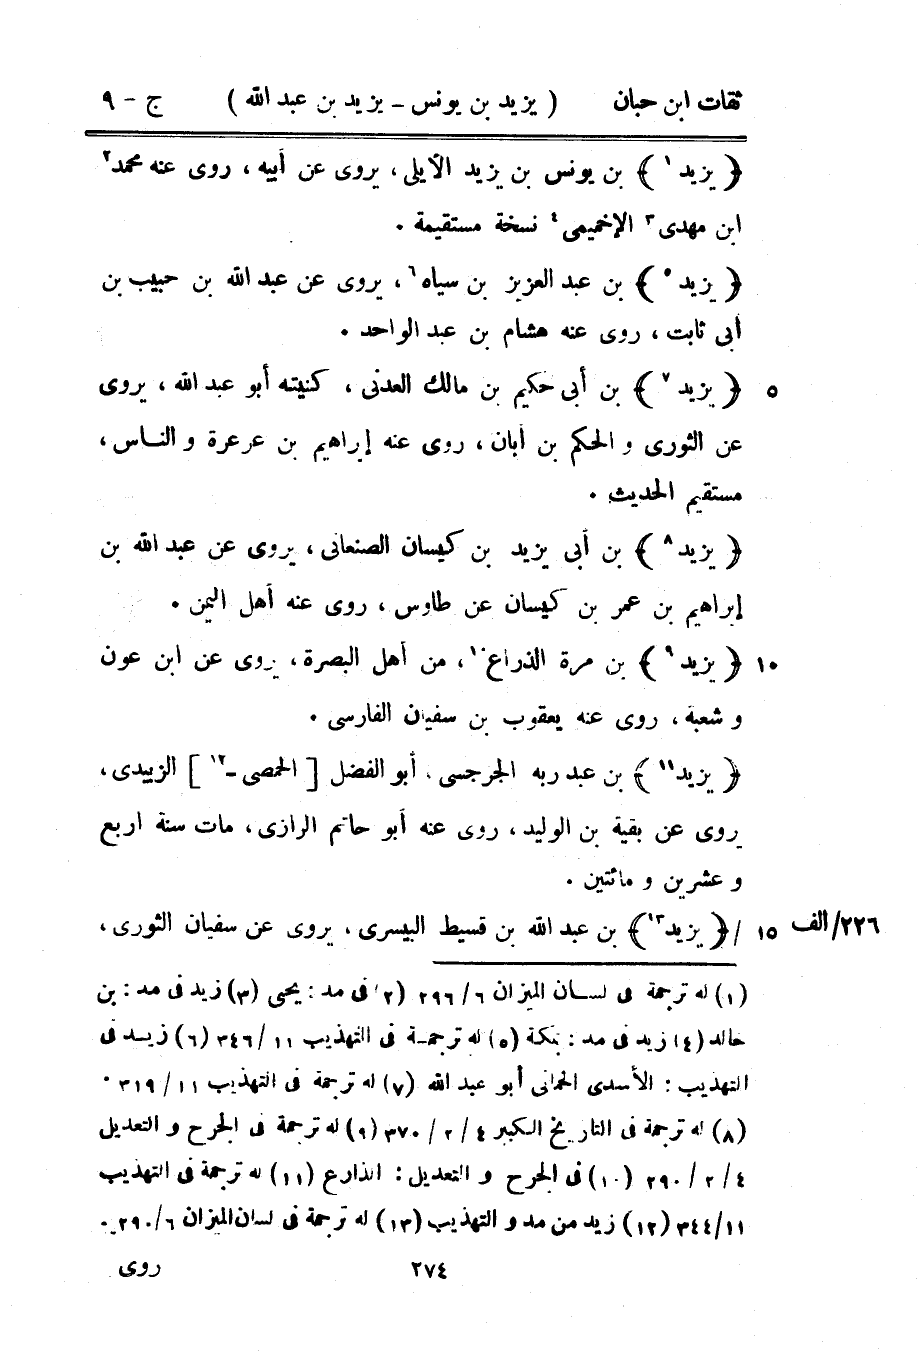 ثقات ابن حبان ( يزيد بن يونس - يزيد بن عبد الله ) ج - ٩
﴿ يزيد ١ ﴾ بن يونس بن يزيد الأيلى ، يروى عن أبيه ، روى عنه محمد ٢
ابن مهدى ٣ الإخميمى ٤ نسخة مستقيمة .
﴿ يزيد ٥ ﴾ بن عبد العزيز بن سياه ٦ ، يروى عن عبد الله بن حبيب بن
أبى ثابت ، روى عنه هشام بن عبد الواحد .
٥ ﴿ يزيد ٧ ﴾ بن أبى حكيم بن مالك العدنى ، كنيته أبو عبد الله ، يروى
عن الثورى و الحكم بن أبان ، روى عنه إبراهيم بن عرعرة و الناس ،
مستقيم الحديث .
﴿ يزيد ٨ ﴾ بن أبى يزيد بن كيسان الصنعانى ، يروى عن عبد الله بن
إبراهيم بن عمر بن كيسان عن طاوس ، روى عنه أهل اليمن .
١٠ ﴿ يزيد ٩ ﴾ بن مرة الذراع ١٠ ، من أهل البصرة ، يروى عن ابن عون
و شعبة ، روى عنه يعقوب بن سفيان الفارسى .
﴿ يزيد ١١ ﴾ بن عبد ربه الجرجسى ، أبو الفضل [ الحمصى - ١٢ ] الزبيدى ،
يروى عن بقية بن الوليد ، روى عنه أبو حاتم الرازى ، مات سنة اربع
و عشرين و مائتين .
٢٢٦/الف ١٥ /﴿ يزيد ١٣ ﴾ بن عبد الله بن قسيط البيسرى ، يروى عن سفيان الثورى ،
(١) له ترجمة فى لسان الميزان ٦ / ٢٩٦ (٢) فى مد : يحيى (٣) زيد فى مد : بن
خالد (٤) زيد فى مد : بنكة (٥) له ترجمة فى التهذيب ١١ / ٣٤٦ (٦) زيد فى
التهذيب : الأسدى الحمانى أبو عبد الله (٧) له ترجمة فى التهذيب ١١ / ٣١٩ .
(٨) له ترجمة فى التاريخ الكبير ٤ / ٢ / ٣٧٠ (٩) له ترجمة فى الجرح و التعديل
٤ / ٢ / ٢٩٠ (١٠) فى الجرح و التعديل : الذارع (١١) له ترجمة فى التهذيب
١١/ ٣٤٤ (١٢) زيد من مد و التهذيب (١٣) له ترجمة فى لسان الميزان ٦/ ٢٩٠ .
٢٧٤ روى